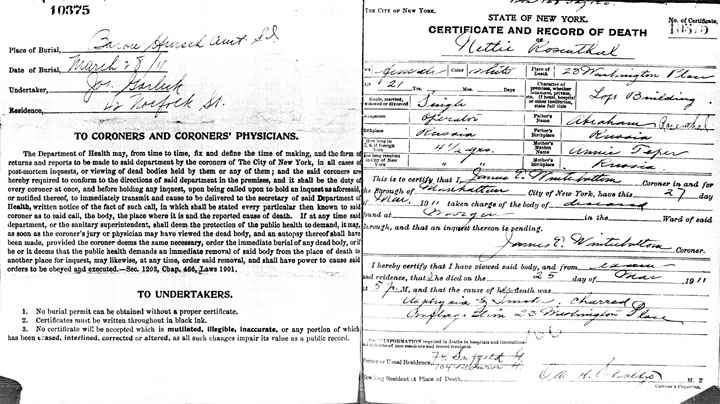 10375
Place of Burial, Baron Hirsch Cemt S.I
Date of Burial, March 28/11
Undertaker, Jos. Garlick
Residence, 42 Norfolk St.
TO CORONERS AND CORONERS' PHYSICIANS.
The Department of Health may, from time to time, fix and define the time of making, and the form of
returns and reports to be made to said department by the coroners of The City of New York, in all cases of
post-mortem inquests, or viewing of dead bodies held by them or any of them; and the said coroners are
hereby required to conform to the directions of said department in the premises, and it shall be the duty of
every coroner at once, and before holding any inquest, upon being called upon to hold an inquest as aforesaid,
or notified thereof, to immediately transmit and cause to be delivered to the secretary of said Department of
Health, written notice of the fact of such call, in which shall be stated every particular then known to said
coroner as to said call, the body, the place where it is and the reported cause of death. If at any time said
department, or the sanitary superintendent, shall deem the protection of the public health to demand, it may,
as soon as the coroner's jury or physician may have viewed the dead body, and an autopsy thereof shall have
been made, provided the coroner deems the same necessary, order the immediate burial of any dead body, or if
he or it deems that the public health demands an immediate removal of said body from the place of death to
another place for inquest, may likewise, at any time, order said removal, and shall have power to cause said
orders to be obeyed and executed.—Sec. 1203, Chap. 466, Laws 1901.
TO UNDERTAKERS.
1. No burial permit can be obtained without a proper certificate.
2. Certificates must be written throughout in black ink.
3. No certificate will be accepted which is mutilated, illegible, inaccurate, or any portion of which
has been erased, interlined, corrected or altered, as all such changes impair its value as a public record.
THE CITY OF NEW YORK.
STATE OF NEW YORK.
No. of Certificate,
CERTIFICATE AND RECORD OF DEATH
10375
OF
Nettie Rosenthal
Sex female Color white Place of Death 23 Washington Place
Age 21 Yrs. Mos. Days
Character of premises, whether tenement, private, etc. If hotel, hospital or other institution, state full title Loft Building
Single, married, widowed or divorced Single
Occupation operator Father's Name Abraham Rosenthal
Birthplace Russia Father's Birthplace Russia
How long in U. S. if foreign born 4 1/2 yrs. Mother's Maiden Name Annie
How long resident in City of New York " " Mother's Birthplace Russia
This is to certify that I, James E. Winterbottom Coroner in and for
the Borough of Manhattan City of New York, have this 27 day
of Mar. 1911 taken charge of the body of deceased
found at Morgue in the Ward of said
Borough, and that an inquest thereon is pending.
James E. Winterbottom Coroner.
I hereby certify that I have viewed said body, and from
and evidence, that she died on the 25 day of Mar 1911
at 5 P. M., and that the cause of her death was
Asphyxia by smoke, charred
Conflagration 23 Washington Place
SPECIAL INFORMATION required in deaths in hospitals and institutions
and in deaths of non-residents and recent residents.
Former or Usual Residence,
How long Resident at Place of Death, M. D
Coroner's Physician.